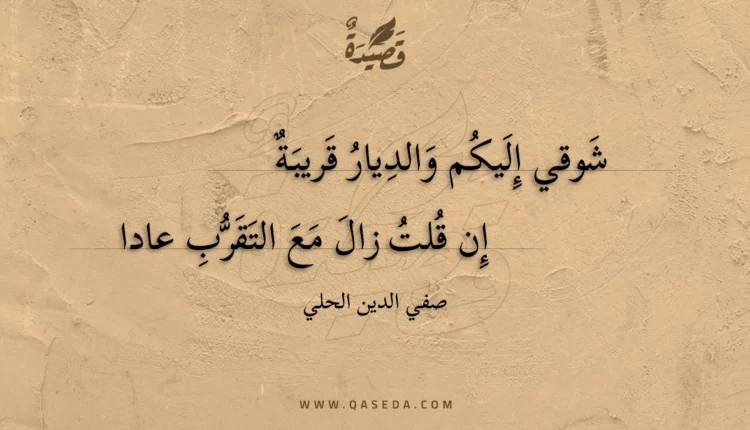 قَصِيدَةٌ
شَوقي إِلَيكُم وَالدِيارُ قَريبَةٌ
إِن قُلتُ زالَ مَعَ التَقَرُّبِ عادا
صفي الدين الحلي
WWW.QASEDA.COM